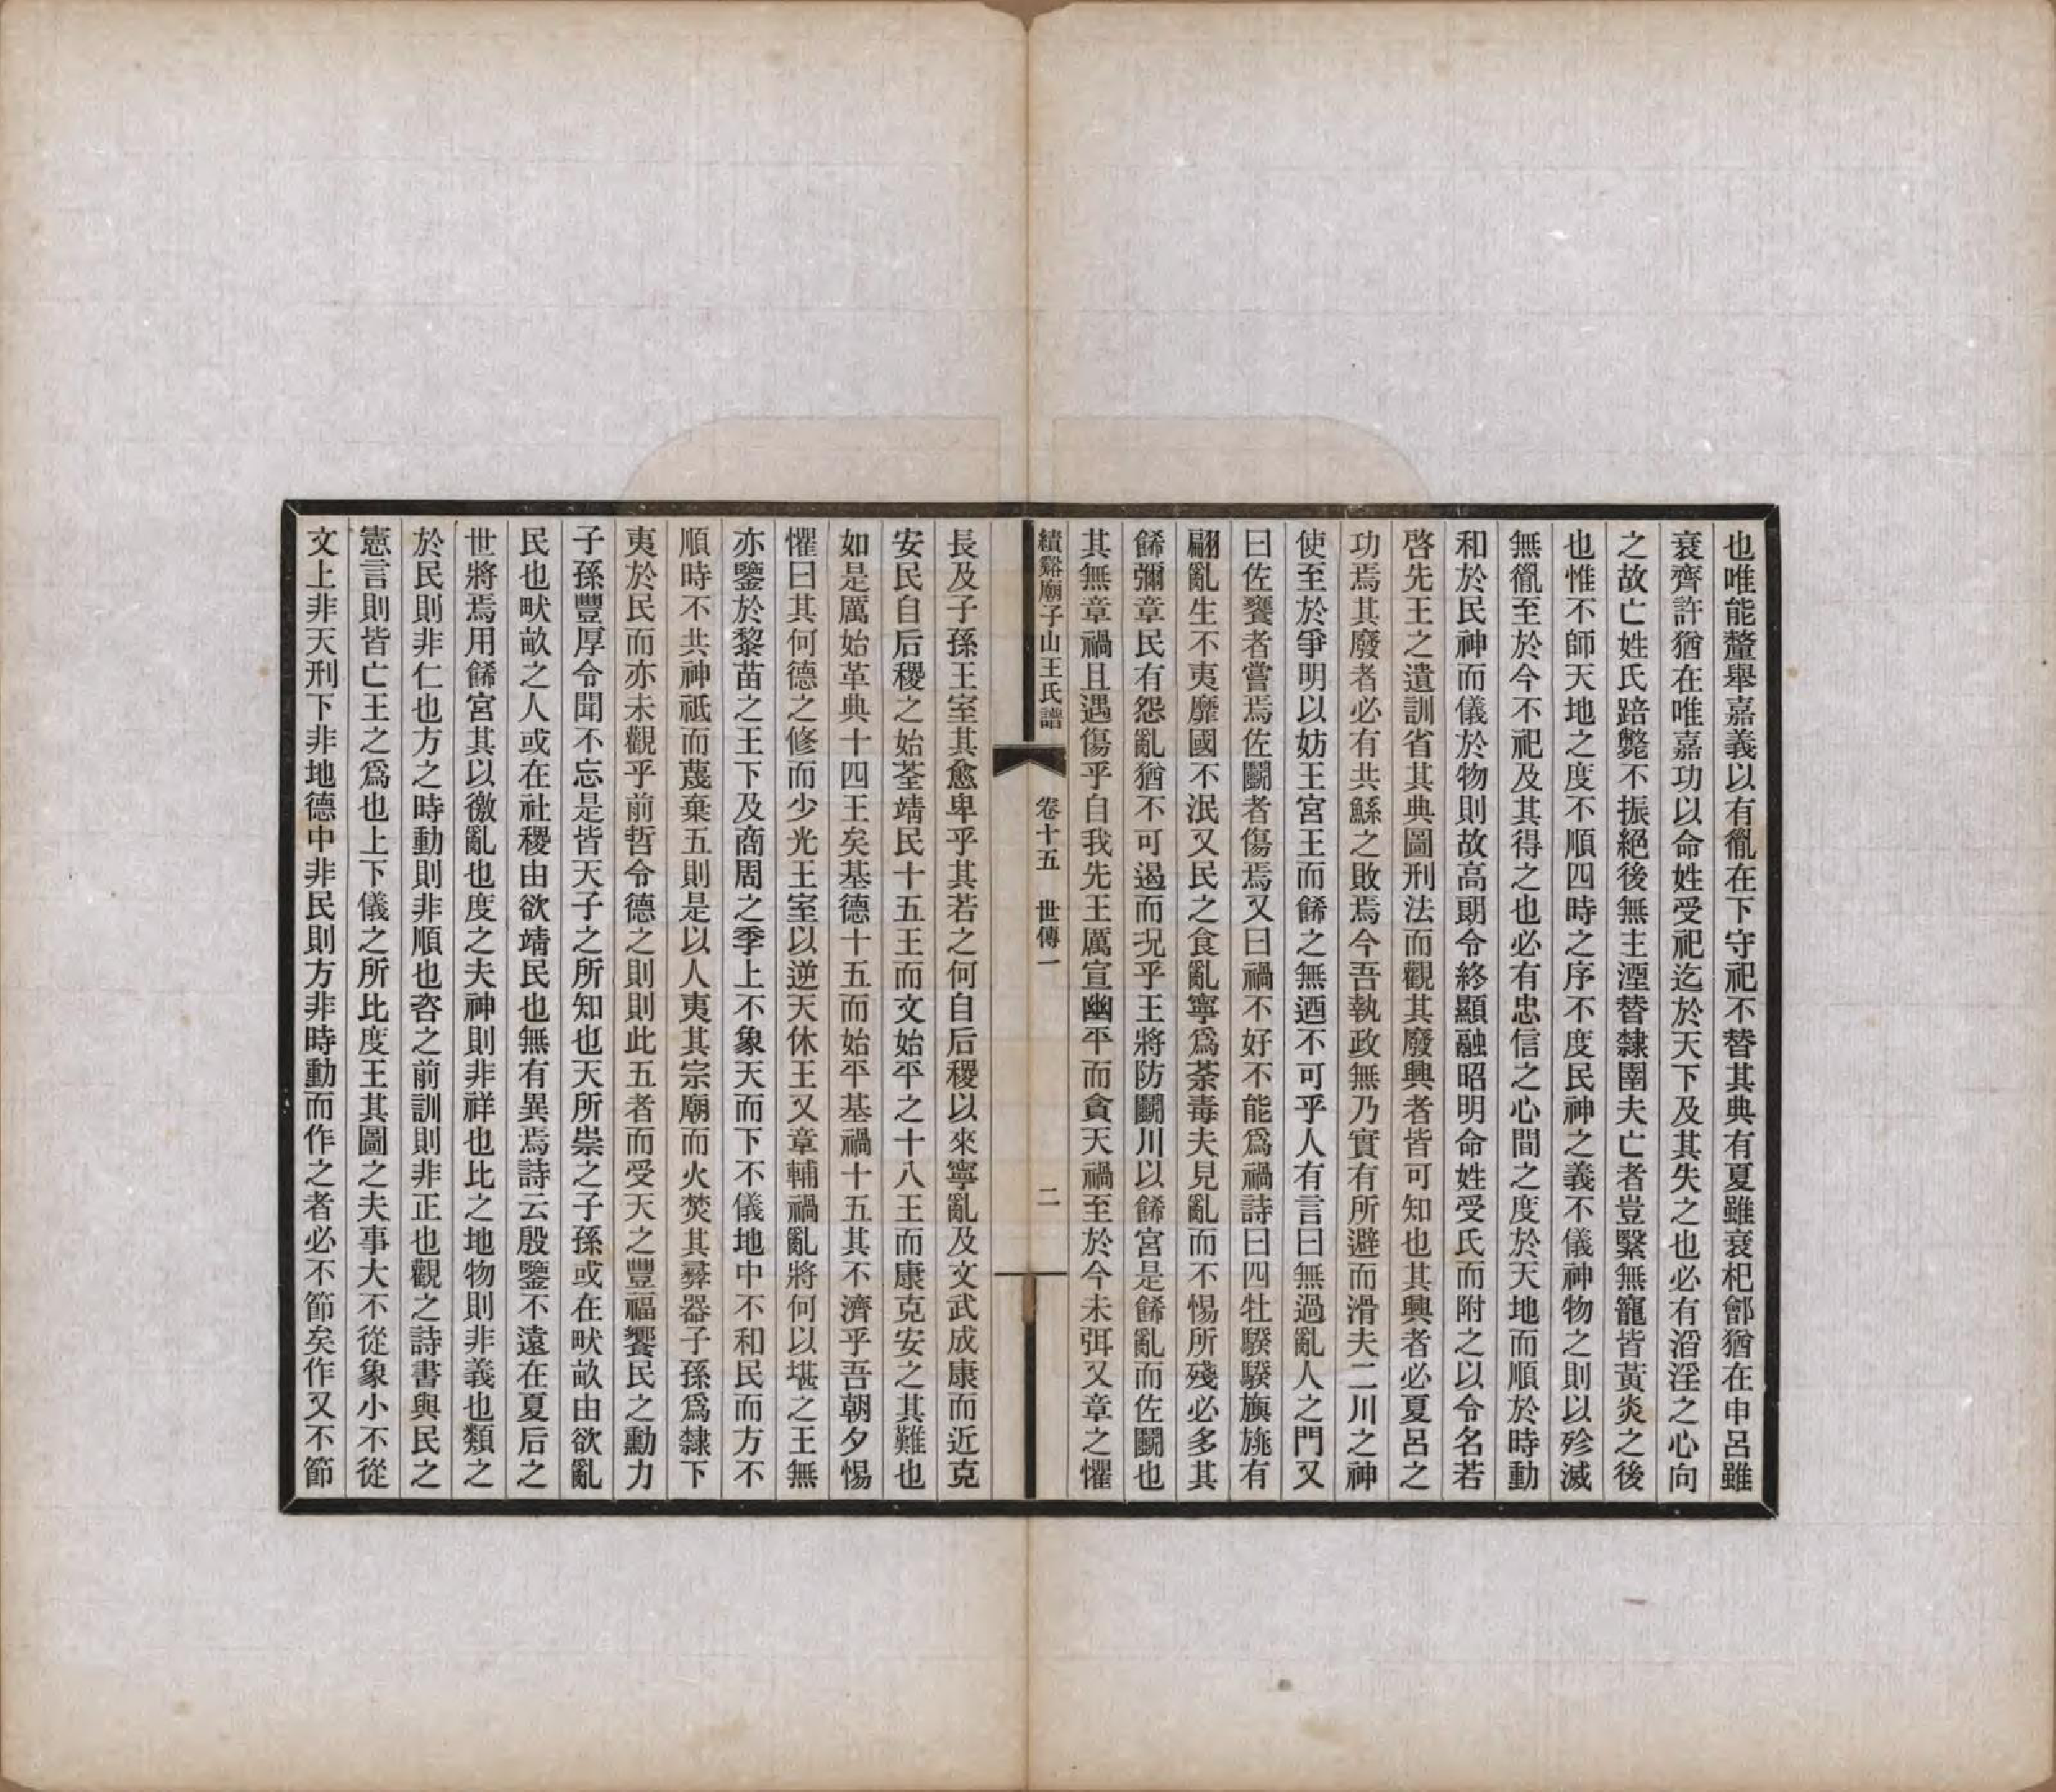 也唯能釐舉嘉義以有胤在下守祀不替其典有夏雖衰杞鄫猶在申呂雖
衰齊許猶在唯嘉功以命姓受祀迄於天下及其失之也必有滔淫之心向
之故亡姓氏踣斃不振絕後無主湮替隸圉夫亡者豈繄無寵皆黃炎之後
也惟不師天地之度不順四時之序不度民神之義不儀神物之則以殄滅
無胤至於今不祀及其得之也必有忠信之心間之度於天地而順於時動
和於民神而儀於物則故高朗令終顯融昭明命姓受氏而附之以令名若
啓先王之遺訓省其典圖刑法而觀其廢興者皆可知也其興者必夏呂之
功焉其廢者必有共鯀之敗焉今吾執政無乃實有所避而滑夫二川之神
使至於爭明以妨王宮王而餙之無迺不可乎人有言曰無過亂人之門又
曰佐饔者嘗焉佐鬭者傷焉又曰禍不好不能爲禍詩曰四牡騤騤旟旐有
翩亂生不夷靡國不泯又民之食亂寧爲荼毒夫見亂而不惕所殘必多其
餙彌章民有怨亂猶不可遏而况乎王將防鬭川以餙宮是餙亂而佐鬭也
其無章禍且遇傷乎自我先王厲宣幽平而貪天禍至於今未弭又章之懼
績谿廟子山王氏譜 卷十五 世傳一 二
長及子孫王室其愈卑乎其若之何自后稷以來寧亂及文武成康而近克
安民自后稷之始荃靖民十五王而文始平之十八王而康克安之其難也
如是厲始革典十四王矣基德十五而始平基禍十五其不濟乎吾朝夕惕
懼曰其何德之修而少光王室以逆天休王又章輔禍亂將何以堪之王無
亦鑒於黎苗之王下及商周之季上不象天而下不儀地中不和民而方不
順時不共神祇而蔑棄五則是以人夷其宗廟而火焚其彞器子孫爲隸下
夷於民而亦未觀乎前哲令德之則則此五者而受天之豐福饗民之勳力
子孫豐厚令聞不忘是皆天子之所知也天所崇之子孫或在畎畝由欲亂
民也畎畝之人或在社稷由欲靖民也無有異焉詩云殷鑒不遠在夏后之
世將焉用餙宮其以徼亂也度之夫神則非祥也比之地物則非義也類之
於民則非仁也方之時動則非順也咨之前訓則非正也觀之詩書與民之
憲言則皆亡王之爲也上下儀之所比度王其圖之夫事大不從象小不從
文上非天刑下非地德中非民則方非時動而作之者必不節矣作又不節